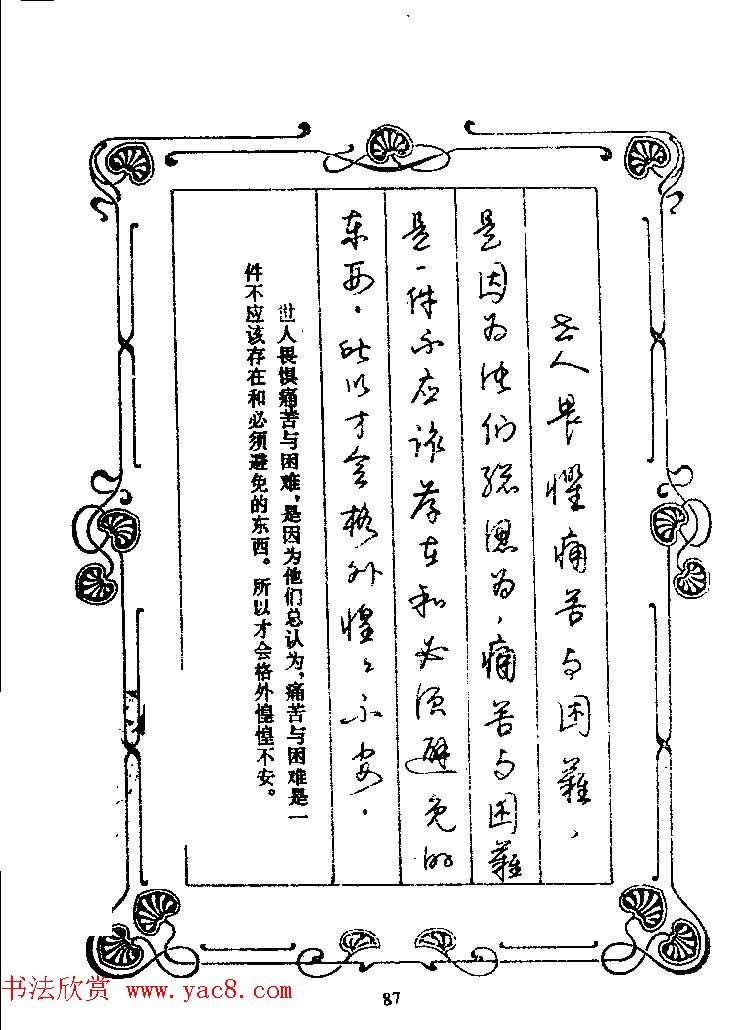 世人畏惧痛苦与困難，
是因为他们総認为，痛苦与困難
是一件不应该存在和必须避免的
东西。所以才会格外惶々不安。
世人畏惧痛苦与困难，是因为他们总认为，痛苦与困难是一
件不应该存在和必须避免的东西。所以才会格外惶惶不安。
87
书法欣赏 www.yac8.com